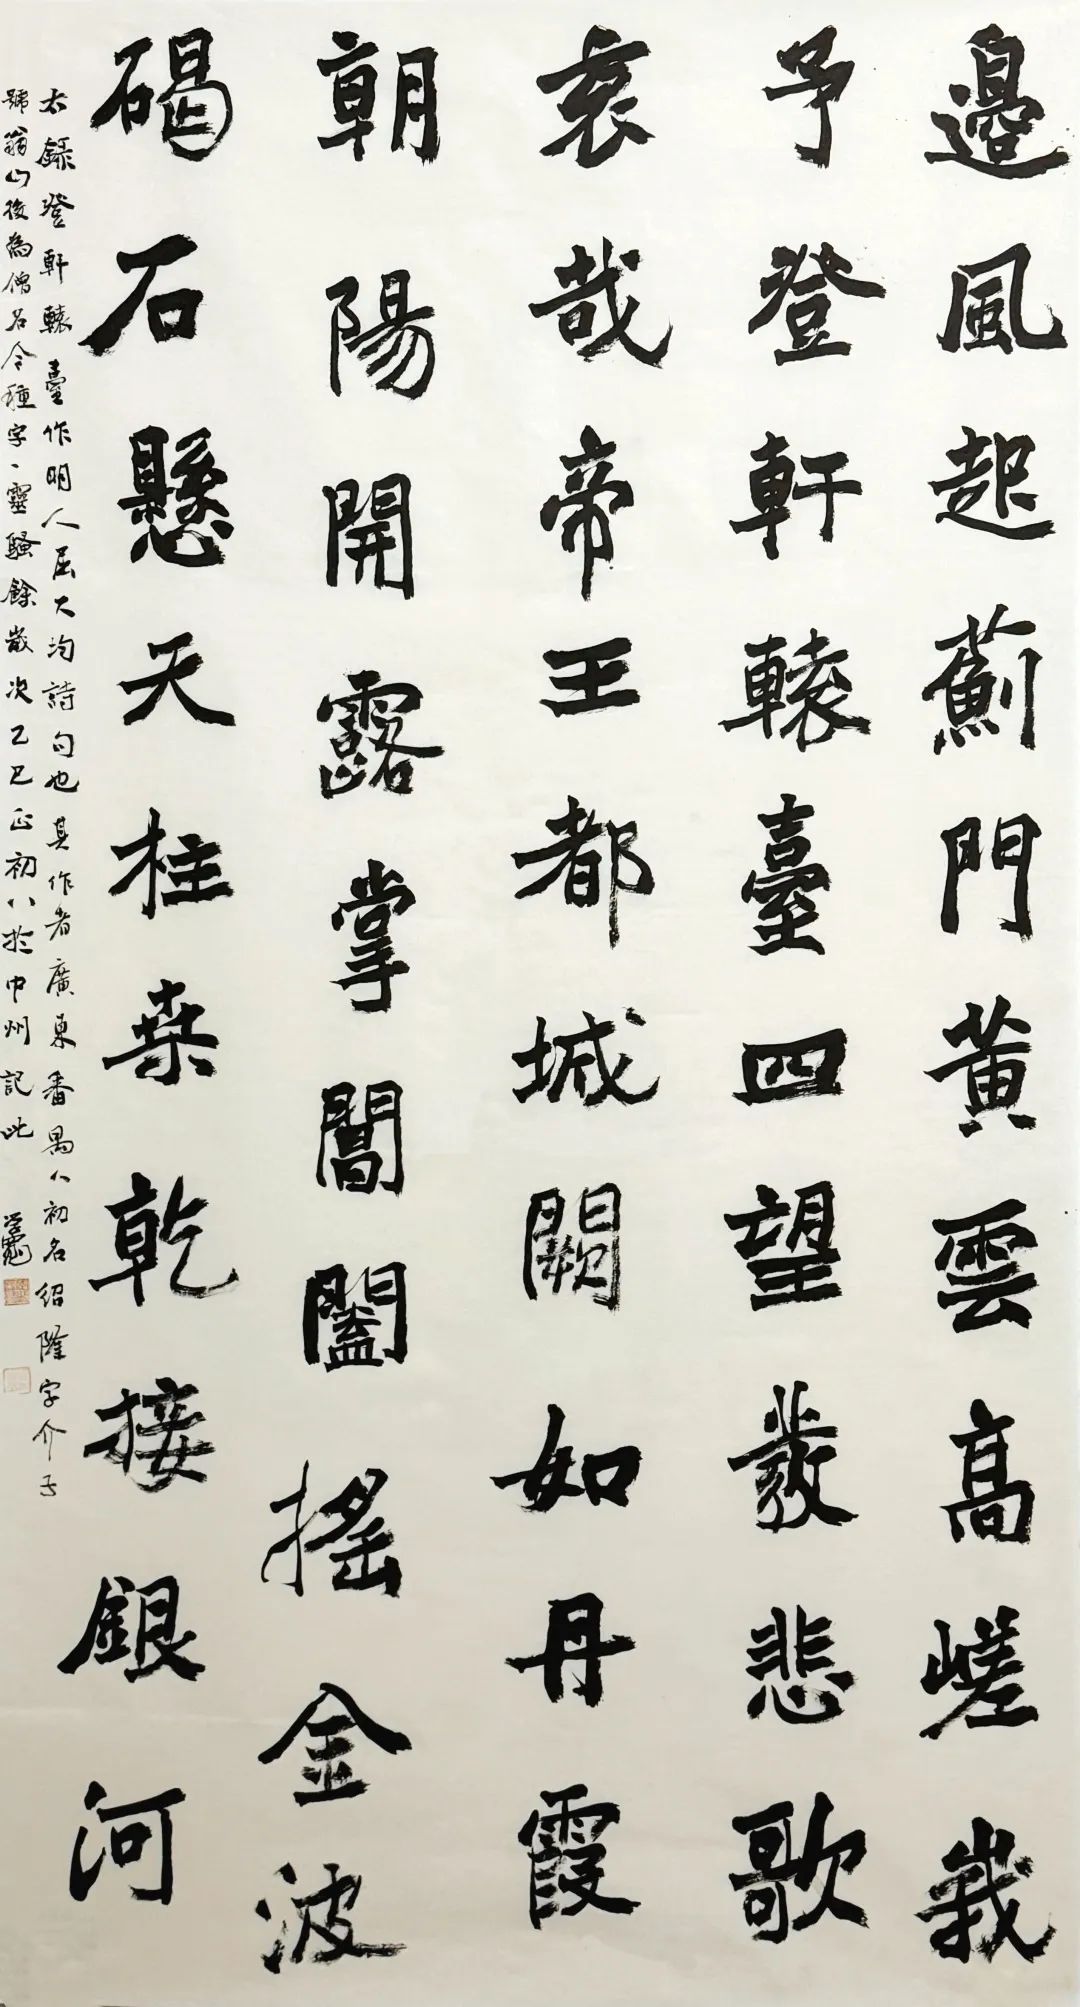 邊風起薊門黃雲高嵯峨
予登軒轅臺四望發悲歌
哀哉帝王都城闕如丹霞
朝陽開露掌閶闔搖金波
碣石懸天柱桑乾接銀河
右錄登軒轅臺作明人屈大均詩句也其作者廣東番禺人初名紹隆字介子
號翁山後為僧名今種字一靈騷餘歲次乙巳正初八於中州記此